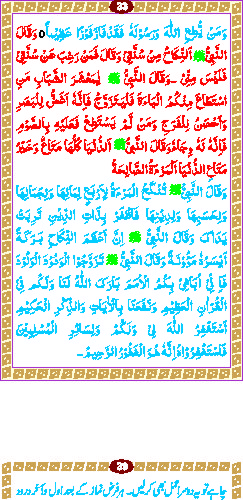 33
وَمَنْ يُّطِعِ اللّٰهَ وَرَسُوْلَهٗ فَقَدْ فَازَ فَوْزًا عَظِيْمًا ٥ وَقَالَ
النَّبِيُّ ﷺ اَلنِّكَاحُ مِنْ سُنَّتِيْ وَقَالَ فَمَنْ رَغِبَ عَنْ سُنَّتِيْ
فَلَيْسَ مِنِّيْ ۔ وَقَالَ النَّبِيُّ ﷺ يَا مَعْشَرَ الشَّبَابِ مَنِ
اسْتَطَاعَ مِنْكُمُ الْبَاءَةَ فَلْيَتَزَوَّجْ فَاِنَّهٗ اَغَضُّ لِلْبَصَرِ
وَاَحْصَنُ لِلْفَرْجِ وَمَنْ لَّمْ يَسْتَطِعْ فَعَلَيْهِ بِالصَّوْمِ
فَاِنَّهٗ لَهٗ وِجَاءٌ وَقَالَ النَّبِيُّ ﷺ اَلدُّنْيَا كُلُّهَا مَتَاعٌ وَخَيْرُ
مَتَاعِ الدُّنْيَا الْمَرْءَةُ الصَّالِحَةُ
وَقَالَ النَّبِيُّ ﷺ تُنْكَحُ الْمَرْءَةُ لِاَرْبَعٍ لِمَالِهَا وَلِجَمَالِهَا
وَلِحَسَبِهَا وَلِدِيْنِهَا فَاظْفَرْ بِذَاتِ الدِّيْنِ تَرِبَتْ
يَدَاكَ وَقَالَ النَّبِيُّ ﷺ اِنَّ اَعْظَمَ النِّكَاحِ بَرَكَةً
اَيْسَرُهٗ مَئُوْنَةً وَقَالَ النَّبِيُّ ﷺ تَزَوَّجُوا الْوَدُوْدَ الْوَلُوْدَ
فَاِنِّيْ اُبَاهِيْ بِكُمُ الْاُمَمَ بَارَكَ اللّٰهُ لَنَا وَلَكُمْ فِي
الْقُرْاٰنِ الْعَظِيْمِ وَنَفَعَنَا بِالْاٰيَاتِ وَالذِّكْرِ الْحَكِيْمِ
اَسْتَغْفِرُ اللّٰهَ لِيْ وَلَكُمْ وَلِسَائِرِ الْمُسْلِمِيْنَ
فَاسْتَغْفِرُوْا اِنَّهٗ هُوَ الْغَفُوْرُ الرَّحِيْمُ ۔
39
چاہے تو یہ دوسرا عمل بھی کر لیں۔ ہر فرض نماز کے بعد اول و آخر درود